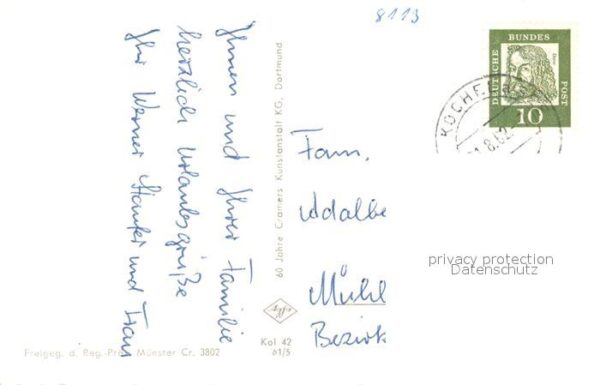 8113
DEUTSCHE BUNDES POST
10
KOCHE
8.62
Ihnen und Ihrer Familie
herzlich Urlaubsgrüße
Ihr Werner und Frau
60 Jahre Cramers Kunstanstalt KG, Dortmund
Fam.
Adalbe
Mühl
Bezirk
privacy protection
Datenschutz
Kol 42
61/5
Freigeg. d. Reg.-Präs. Münster Cr. 3802